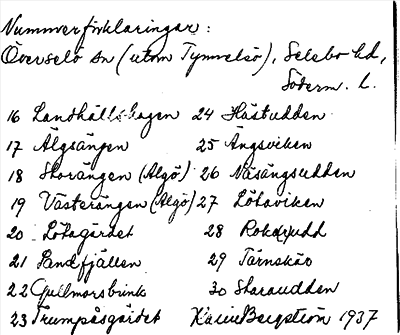 Nummerförklaringar:
Överselö sn (utom Tynnelsö), Selebo hd,
Söderm. l.
16 Landhallshagen 24 Hästudden
17 Älgsängen 25 Ängsviken
18 Storängen (Algö) 26 Näsängsudden
19 Västerängen (Algö) 27 Lötaviken
20 Lötagärdet 28
21 Sandfjällen 29 Tärnskär
22 Gullmorsbrink 30 Skaraudden
23 Trumpåsgärdet Karin Bergström 1937